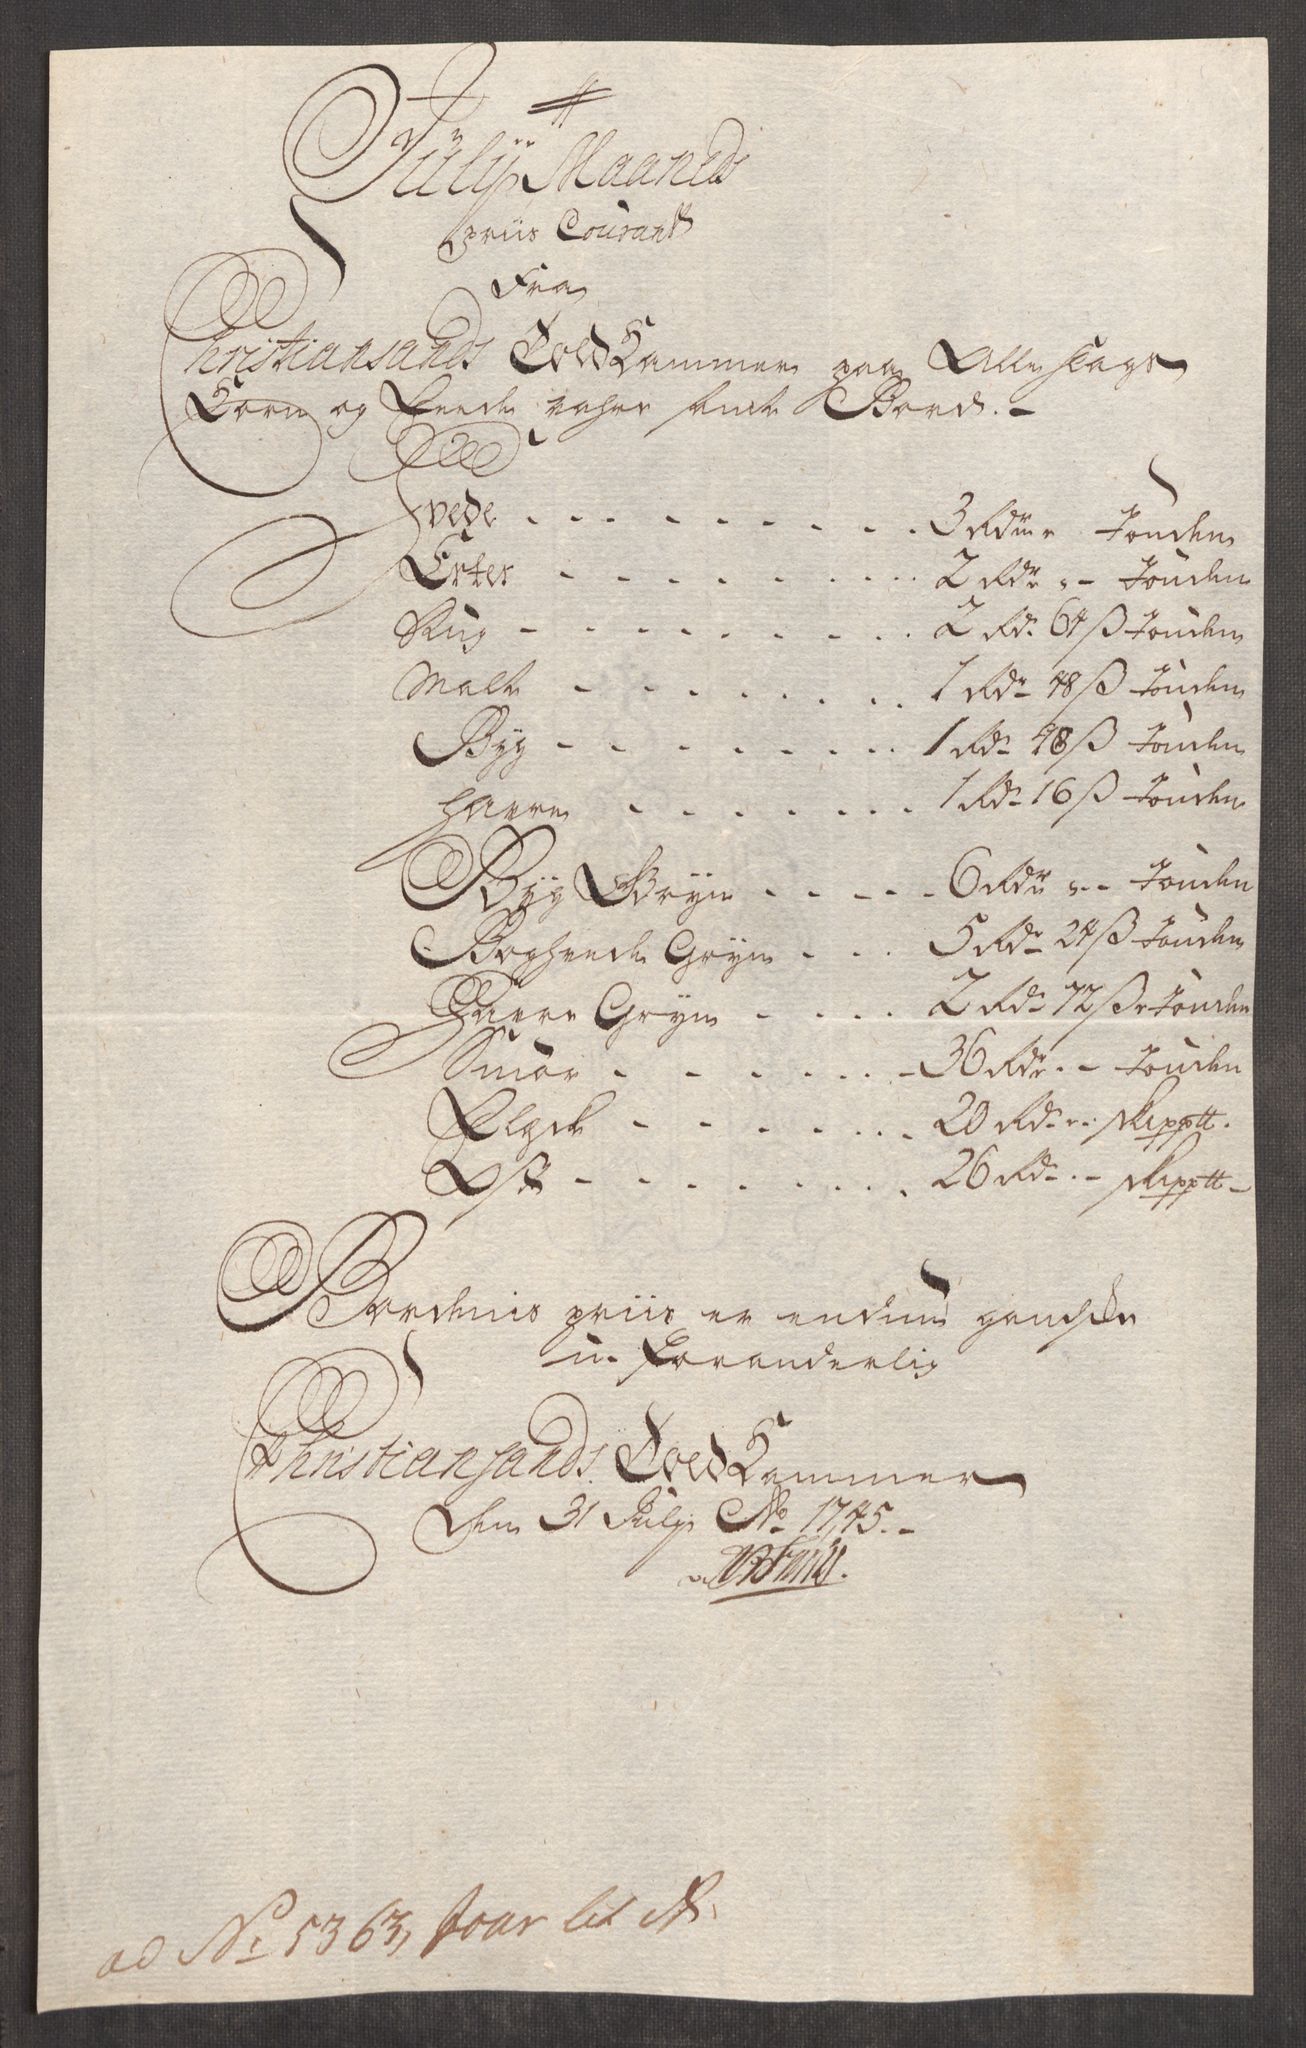 July Maaneds
priis Courant
Fra
Christiansands Told Kammer paa Alle slags
Korn og Feede vahre samt Bord. -
Hvede - - - - 3 Rdr - Tønden
Erter - - - - 2 Rdr - Tønden
Rug - - - - 2 Rdr 64 ß Tønden
Malt - - - - 1 Rdr 48 ß Tønden
Byg - - - - 1 Rdr 48 ß Tønden
Havre - - - - 1 Rdr 16 ß Tønden
Byg Gryn - - - - 6 Rdr - Tønden
Boghvede Gryn - - - 5 Rdr 24 ß Tønden
Havre Gryn - - - - 2 Rdr 72 ß Tønden
Smør - - - - 36 Rdr - Tønden
Flesk - - - - 20 Rdr - skipptt.
Ost - - - - 26 Rdr - skipptt -
Bordenis priis er endnu gandske
u-foranderlig
Christiansands Told Kammer
den 31 July Ao 1745. -
ad No 5363, Jour lit A.